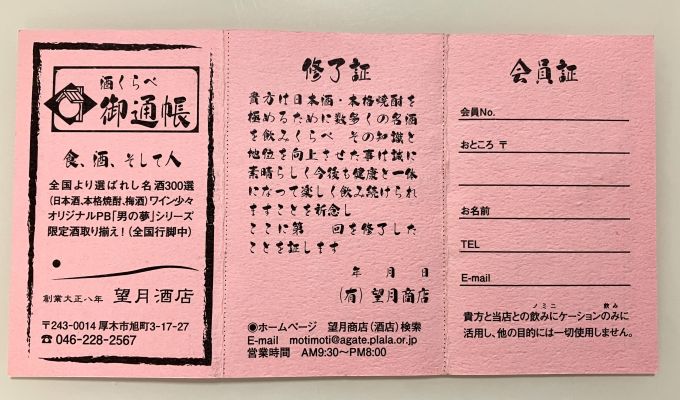 酒くらべ
御通帳
食、酒、そして人
全国より選ばれし名酒300選
(日本酒、本格焼酎、梅酒)ワイン少々
オリジナルPB「男の夢」シリーズ
限定酒取り揃え!(全国行脚中)
創業大正八年 望月酒店
〒243-0014 厚木市旭町3-17-27
☎ 046-228-2567
修了証
貴方は日本酒・本格焼酎を
極めるために数多くの名酒
を飲みくらべ その知識と
地位を向上させた事は誠に
素晴らしく今後も健康と一体
になって楽しく飲み続けられ
ますことを祈念し
ここに第 回を修了した
ことを証します
年 月 日
(有)望月商店
◉ホームページ 望月商店(酒店)検索
E-mail motimoti@agate.plala.or.jp
営業時間 AM9:30〜PM8:00
会員証
会員No.
おところ 〒
お名前
TEL
E-mail
ノミニ 飲み
貴方と当店との飲みにケーションのみに
活用し、他の目的には一切使用しません。